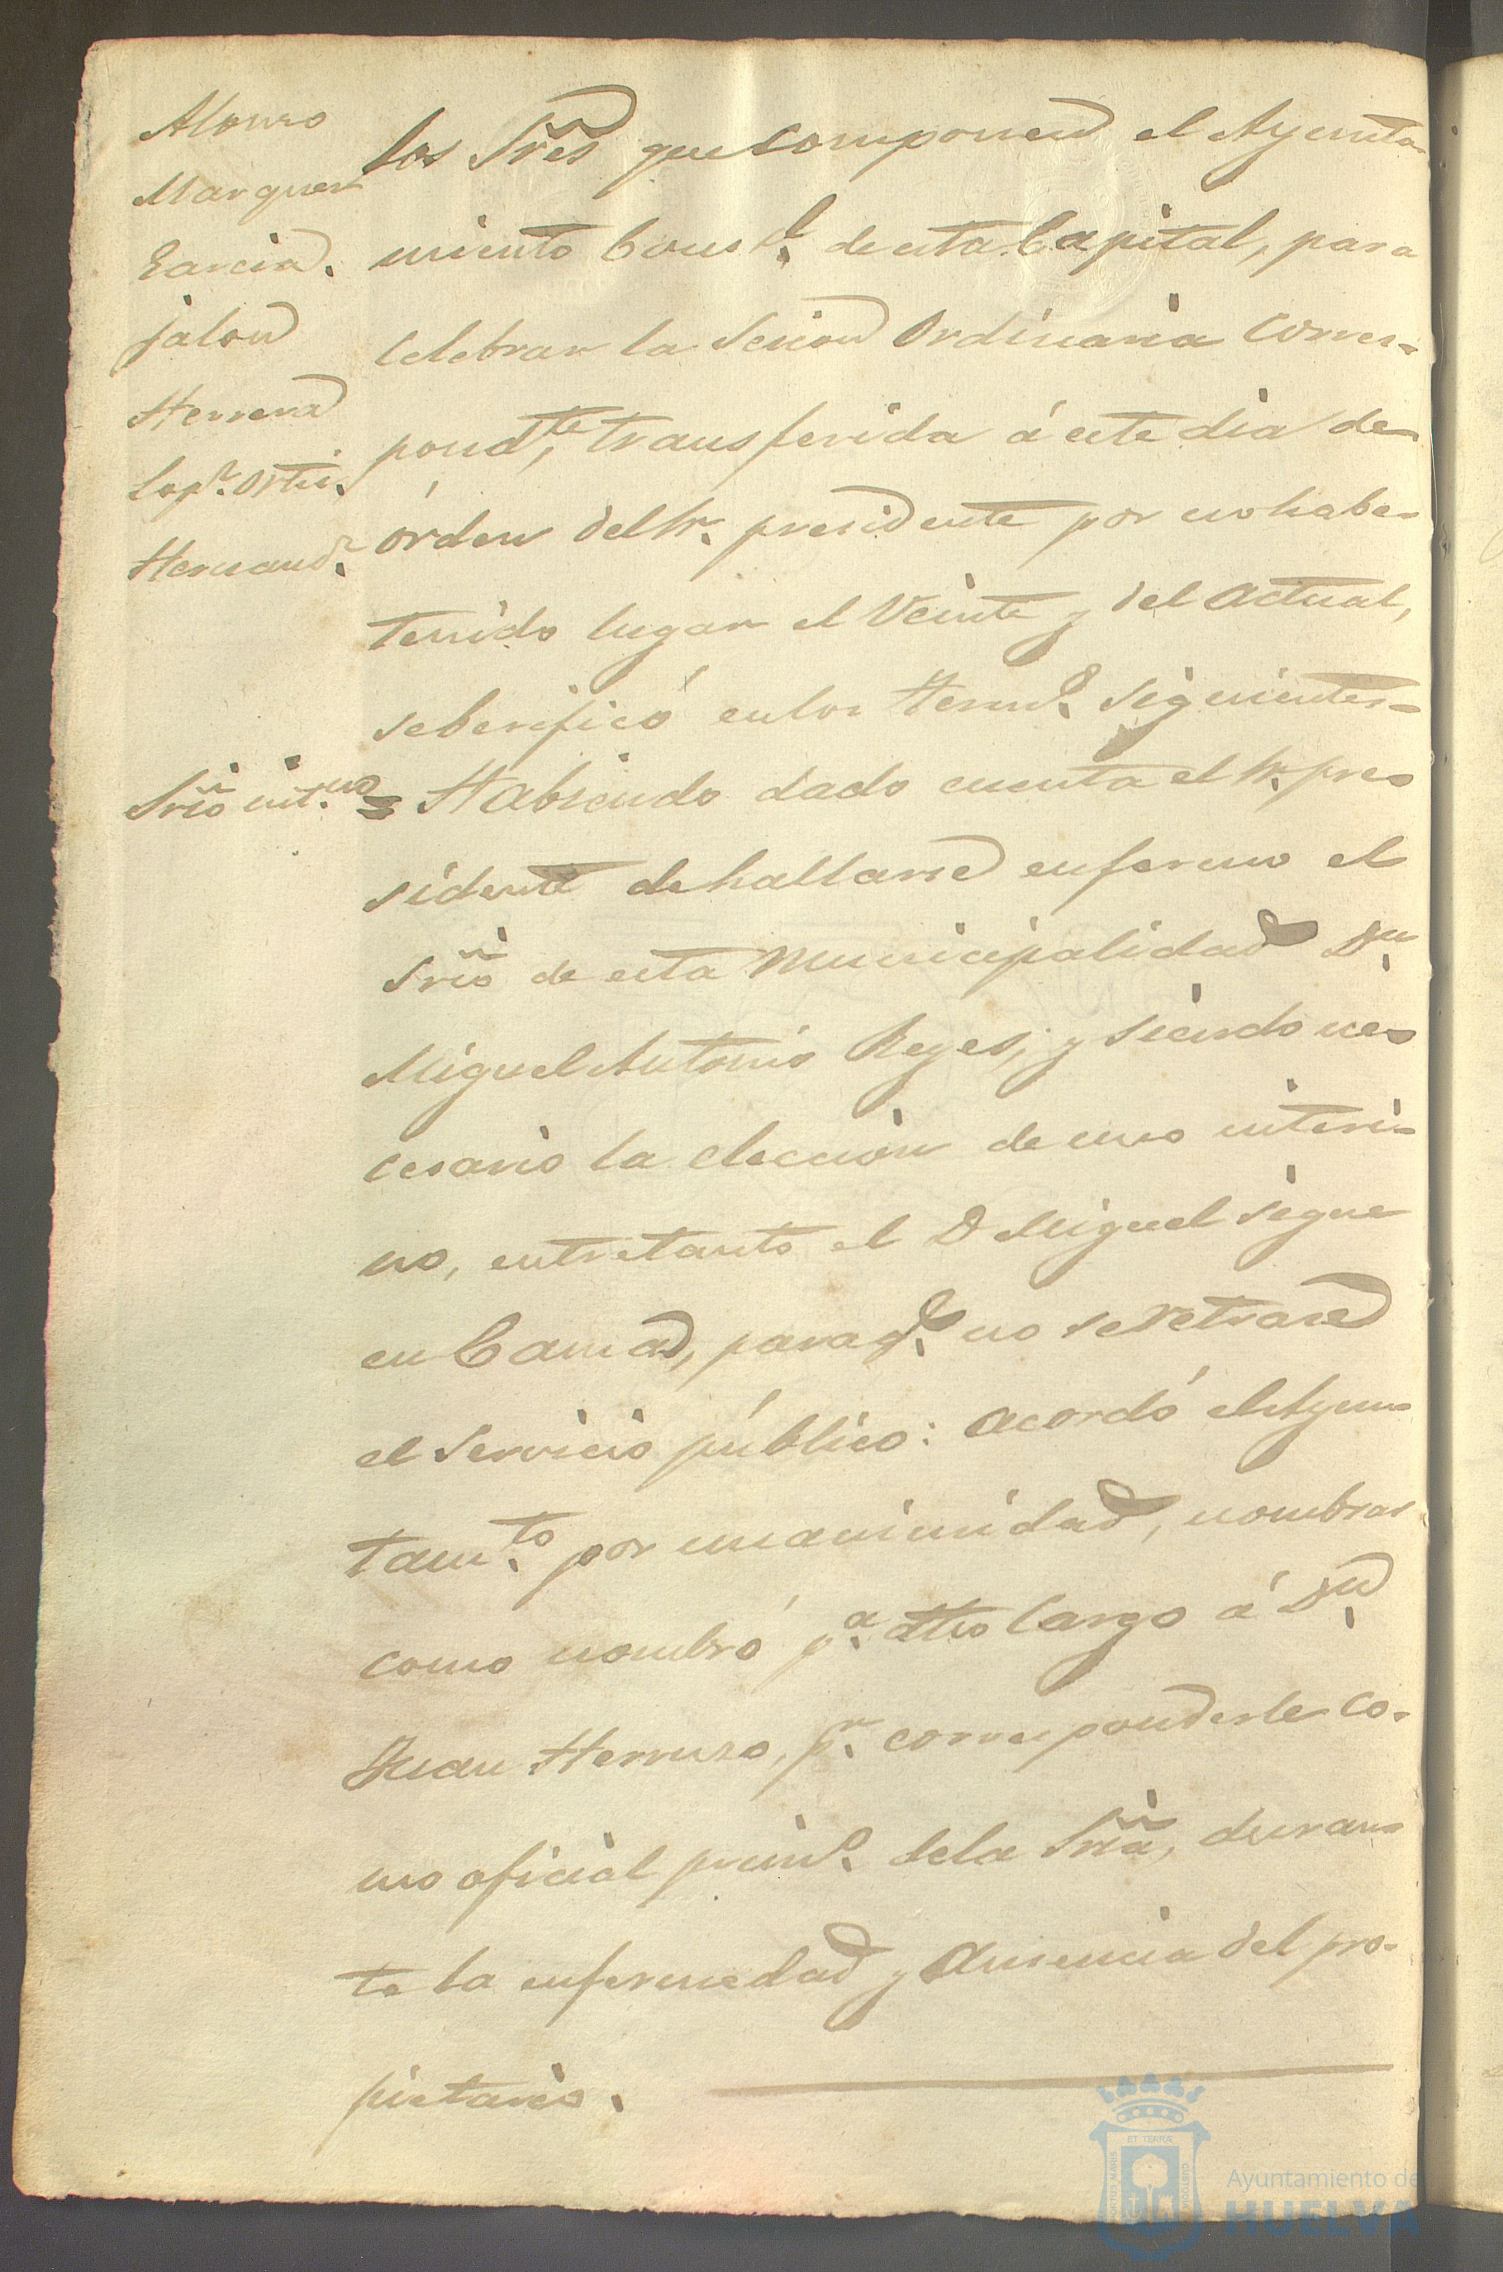 Alonso
Marquez
Garcia.
jalon
Herrera
Lopz. Ortiz.
Hernandz.
los Sres que componen el Ayunta-
miento Consl. de esta Capital, para
celebrar la Sesion Ordinaria Corres-
pondte, transferida á este dia de
órden del Sr. presidente por no haber
tenido lugar el Veinte y del actual,
se berificó en los termos. siguientes-
Srio. intno. = Habiendo dado cuenta el Sr. pre-
sidente de hallarse enfermo el
Srio de esta Municipalidad Dn.
Miguel Antonio Reyes, y siendo ne-
cesario la eleccion de uno interi-
no, entretanto el D Miguel sigue
en Cama, para qe. no se retrase
el servicio público: acordó el Ayun-
tamto. por unanimidad, nombrar
como nombró pa. dho cargo á Dn.
Juan Herruzo, pr. corresponderle co-
mo oficial primo. de la Sria, duran-
te la enfermedad y ausencia del pro-
pietario.
ET TERRÆ
PORTUS MARIS
CUSTODIA
Ayuntamiento de
HUELVA